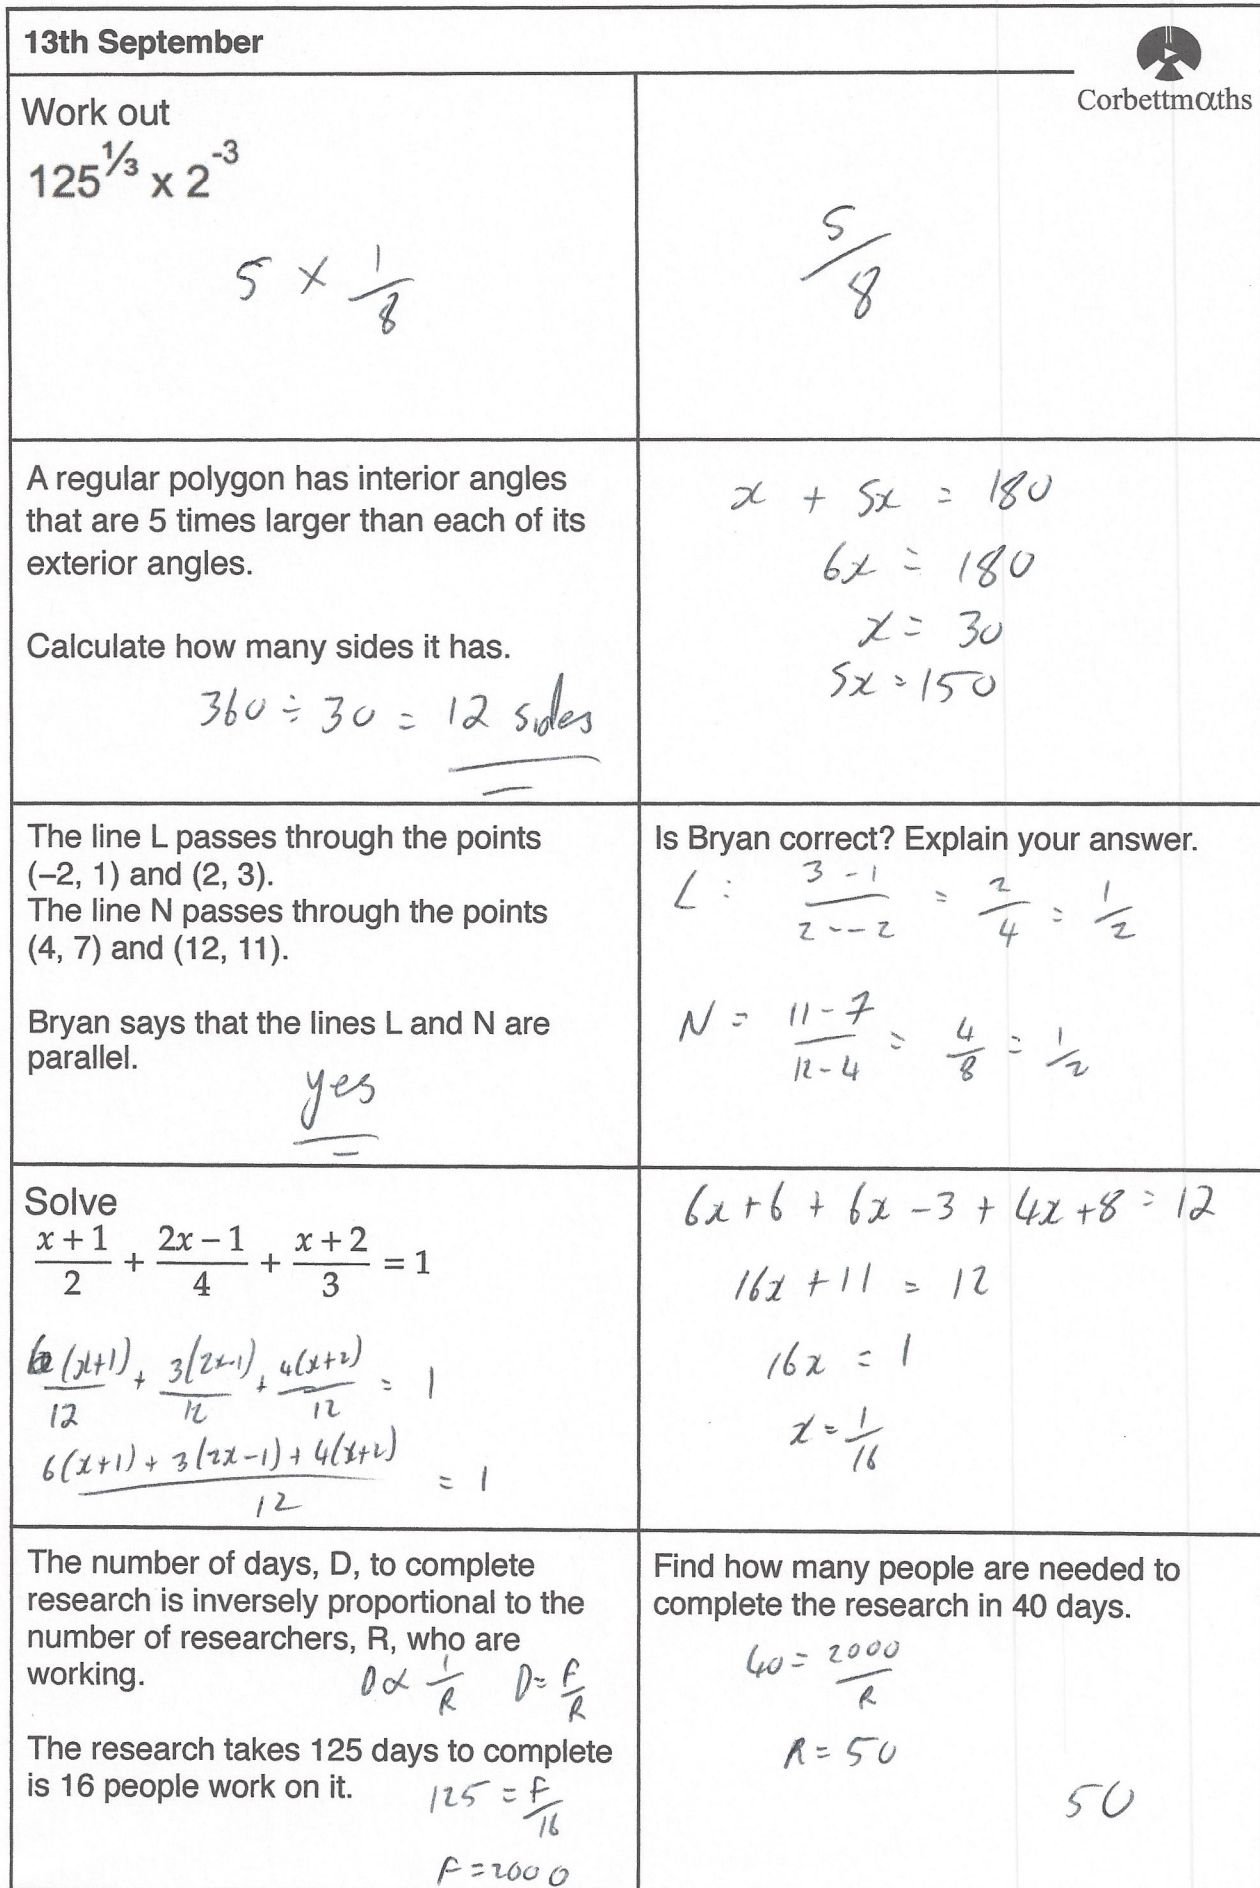 13th September
Corbettmαths
Work out
125^⅓ x 2^-3
5 × 1/8
5/8
A regular polygon has interior angles
that are 5 times larger than each of its
exterior angles.
Calculate how many sides it has.
360 ÷ 30 = 12 sides
x + 5x = 180
6x = 180
x = 30
5x = 150
The line L passes through the points
(–2, 1) and (2, 3).
The line N passes through the points
(4, 7) and (12, 11).
Bryan says that the lines L and N are
parallel.
yes
Is Bryan correct? Explain your answer.
L : (3 - 1)/(2 - - 2) = 2/4 = 1/2
N = (11 - 7)/(12 - 4) = 4/8 = 1/2
Solve
(x + 1)/2 + (2x – 1)/4 + (x + 2)/3 = 1
6(x+1)/12 + 3(2x-1)/12 + 4(x+2)/12 = 1
(6(x+1) + 3(2x-1) + 4(x+2))/12 = 1
6x + 6 + 6x - 3 + 4x + 8 = 12
16x + 11 = 12
16x = 1
x = 1/16
The number of days, D, to complete
research is inversely proportional to the
number of researchers, R, who are
working.
D ∝ 1/R D = f/R
The research takes 125 days to complete
is 16 people work on it.
125 = f/16
f = 2000
Find how many people are needed to
complete the research in 40 days.
40 = 2000/R
R = 50
50